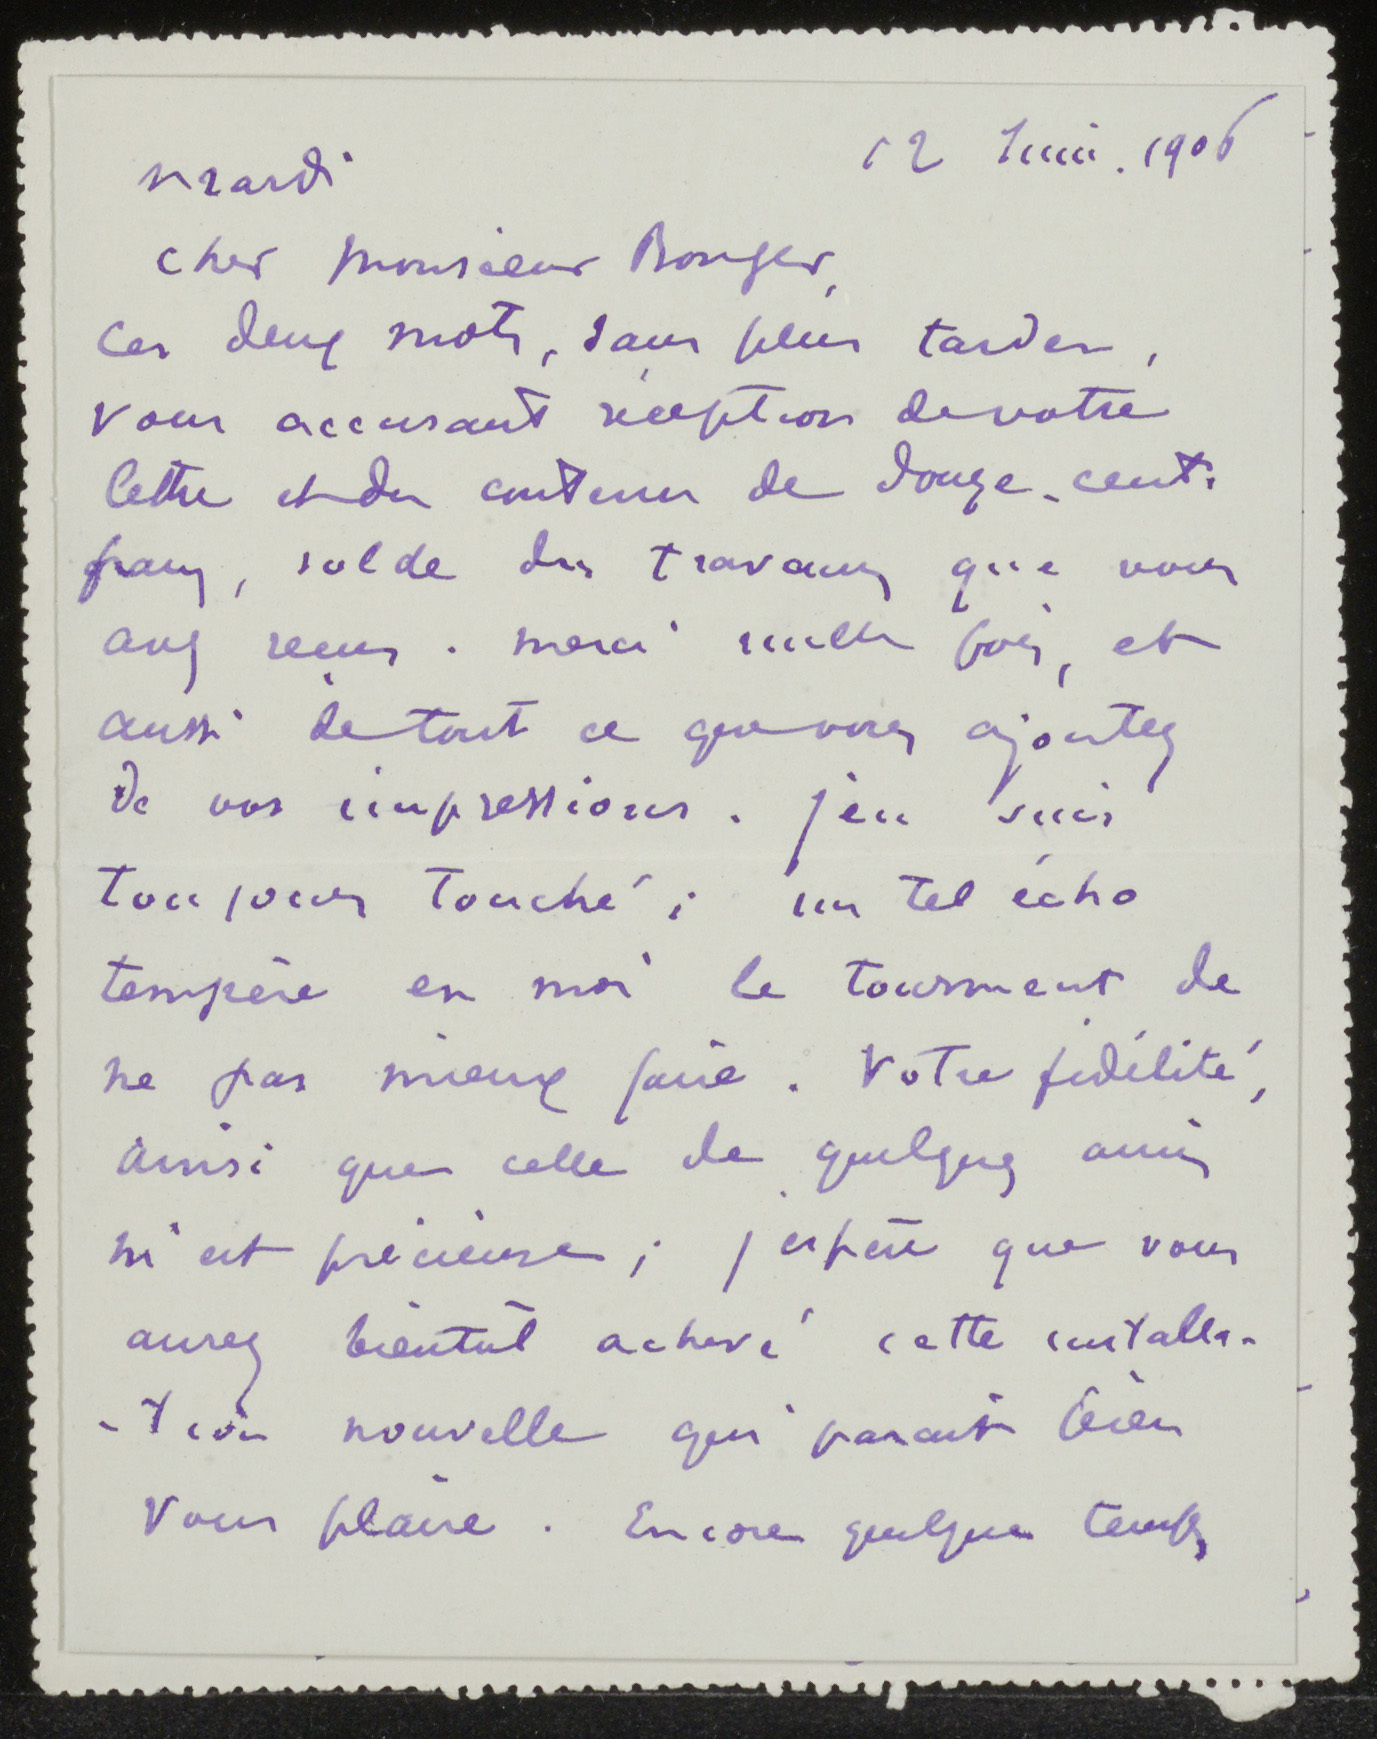 12 Juin. 1906
mardi
cher monsieur Bonger,
Ces deux mots, sans plus tarder,
vous accusant réception de votre
lettre et du contenu de douze-cents
francs, solde des travaux que vous
avez reçus. merci mille fois, et
aussi de tout ce que vous ajoutez
de vos impressions. j'en suis
toujours touché ; un tel écho
tempère en moi le tourment de
ne pas mieux faire. Votre fidélité,
ainsi que celle de quelques amis
m'est précieuse ; j'espère que vous
aurez bientôt achevé cette installa-
-tion nouvelle qui parait bien
vous plaire. Encore quelque temps